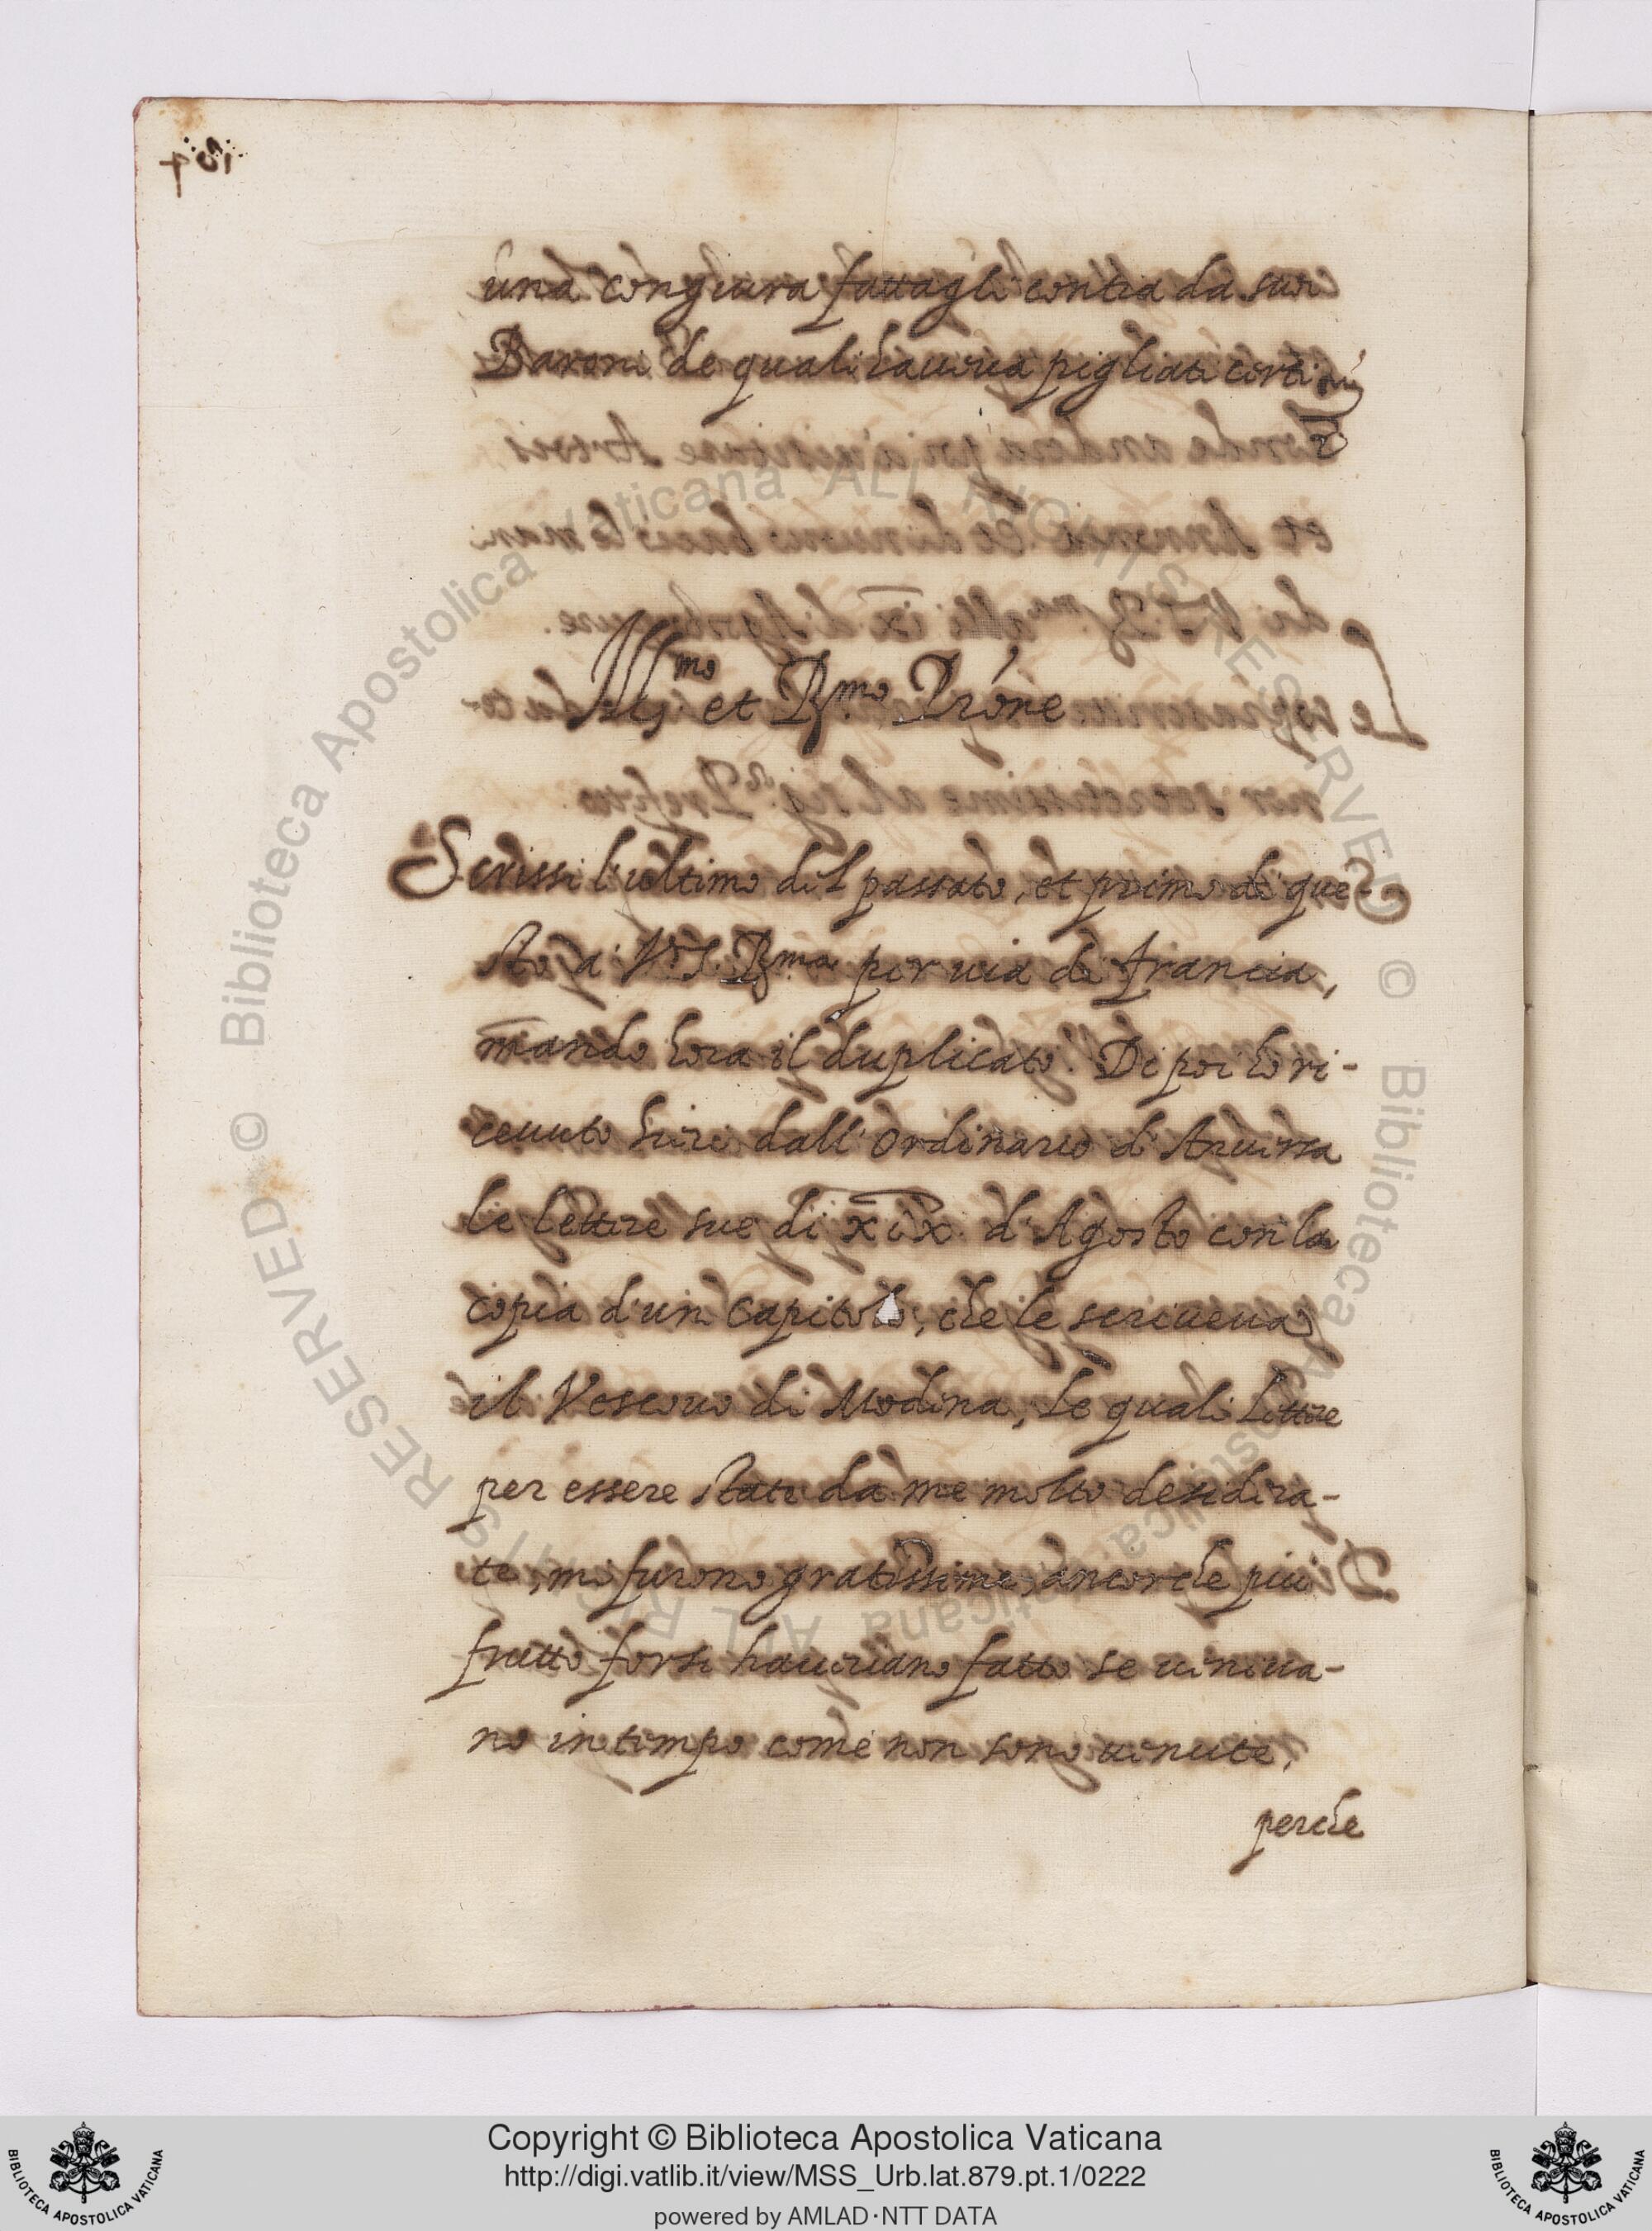 una congiura fattagli contra da suoi
Baroni de quali haueua pigliati certi
Ill.mo et R.mo P'rone
Scrissi l'ultimo del passato, et primo di que-
sto a V. S. R.ma per uia di Francia,
mando hora il duplicato. Di poi ho ri-
ceuuto hieri dall'Ordinario d'Anuersa
le lettere sue di xix d'Agosto con la
copia d'un Capitolo, che le scriueua
il Vescouo di Modena, le quali lettere
per essere state da me molto desidera-
te, mi furono gratissime, ancor che più
frutto forsi haueriano fatto se ueniua-
no in tempo come non sono uenute,
perche
Copyright © Biblioteca Apostolica Vaticana
http://digi.vatlib.it/view/MSS_Urb.lat.879.pt.1/0222
powered by AMLAD·NTT DATA
BIBLIOTECA APOSTOLICA VATICANA
BIBLIOTECA APOSTOLICA VATICANA
© Biblioteca Apostolica Vaticana ALL RIGHTS RESERVED © Biblioteca Apostolica Vaticana ALL RIGHTS RESERVED